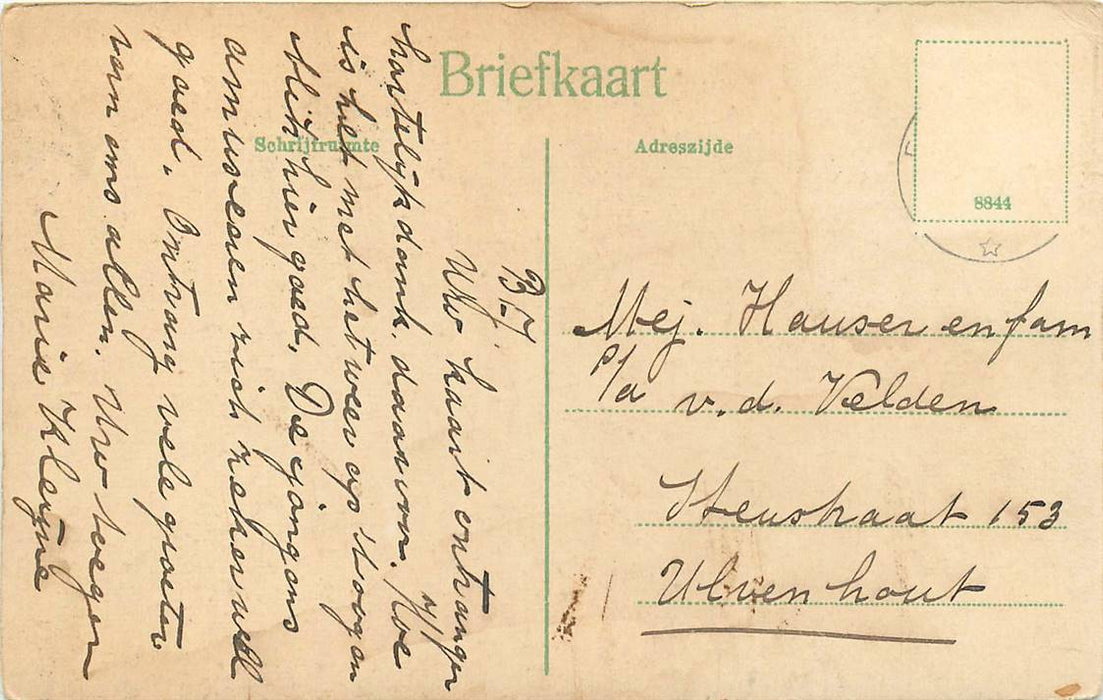 Briefkaart
Schrijfruimte
Adreszijde
8844
B. 7.
Uw kaart ontvangen
hartelijk dank daarvoor. Hoe
is het met het weer op 't oogen
blik hier goed. De jongens
amuseeren zich zeker wel
goed. Ontvang vele groeten
van ons allen. Uw toegen
Marie Kleijne
Mej. Hauser en fam
p/a v. d. Velden
153
Ulvenhout